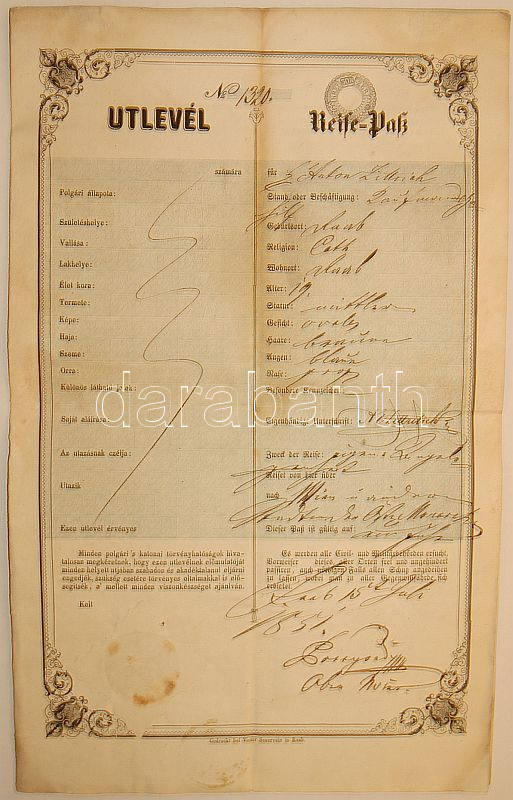 No 1320.
UTLEVÉL
Reise-Paß
számára
Polgári állapota:
Születéshelye:
Vallása:
Lakhelye:
Élet kora:
Termete:
Képe:
Haja:
Szeme:
Orra:
Különös látható jelek:
Saját aláirása:
Az utazásnak czélja:
Utazik
Ezen utlevél érvényes
für Anton
Stand oder Beschäftigung:
Geburtsort: Raab
Religion: Cath
Wohnort: Raab
Alter: 19
Statur: mittler
Gesicht: oval
Haare: braune
Augen: blaue
Nase: groß
Besondere Kennzeichen:
Eigenhändige Unterschrift:
Zweck der Reise: eigene
Reiset von hier über
nach Wien u andere
Dieser Paß ist gültig auf
darabanth
Minden polgári 's katonai törvényhatóságok hiva-
talosan megkéretnek, hogy ezen utlevélnek előmutatóját
minden helyett utjában szabadon és akadéktalanul eljárni
engedjék, szükség esetére törvényes oltalmakkal is elő-
segitsék, a mellett minden viszonkészséget ajánlván.
Kelt
Es werden alle Civil- und Militärbehörden ersucht,
Vorweiser dieses aller Orten frei und ungehindert
passiren, auch nöthigen Falls allen Schuz angedeihen
zu lassen, wobei man zu aller Gegenwillfährde sich
erbietet.
Raab 15 Juli
1851.
Gedruckt bei Victor Sauervein in Raab.